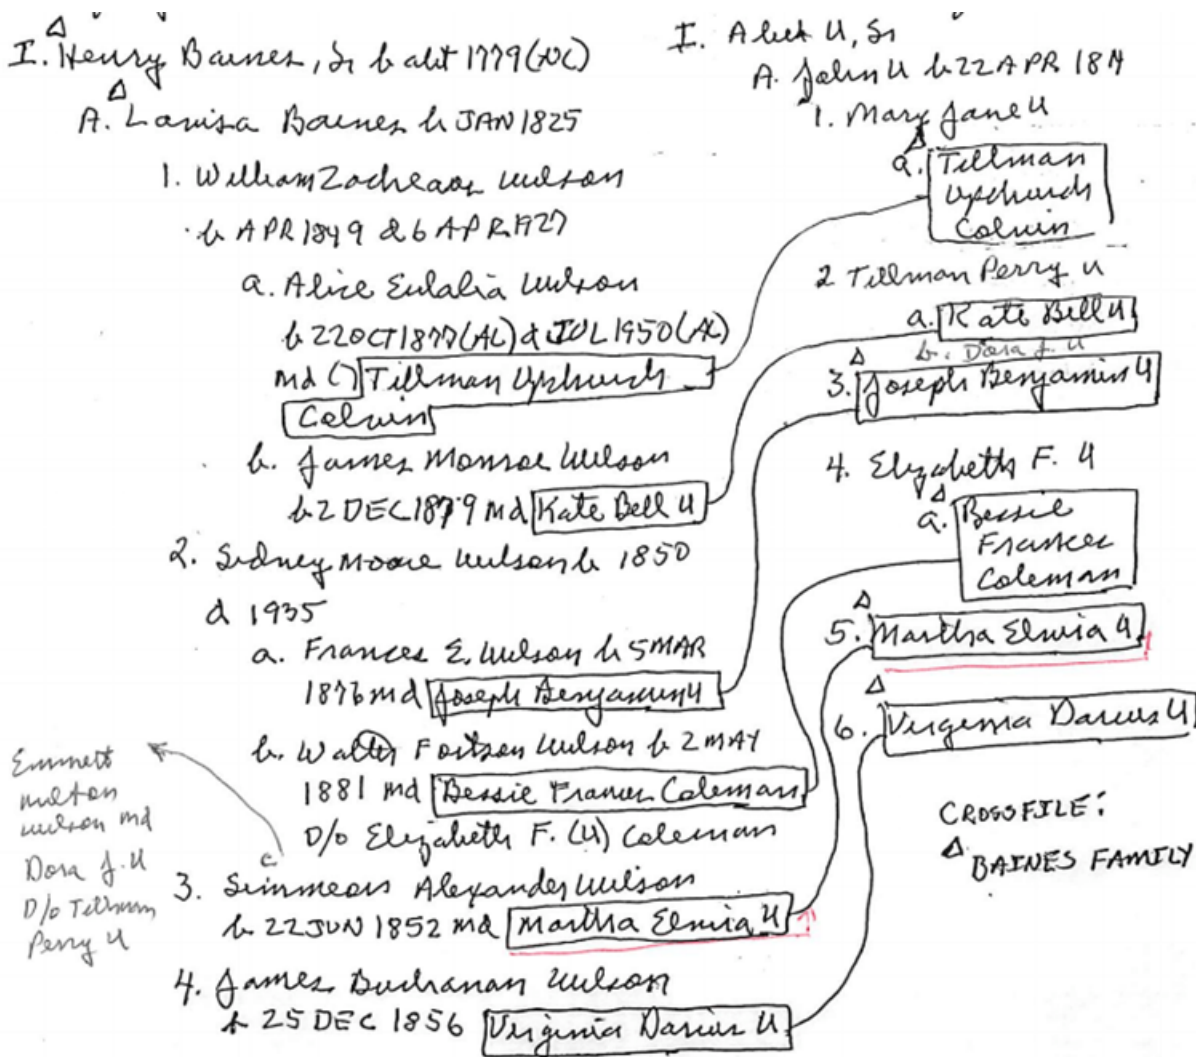 I. Henry Baines, Sr b abt 1779 (NC)
A. Lavisa Baines b JAN 1825
1. William Zacheaos Wilson
b APR 1849 d 6 APR 1927
a. Alice Eulalia Wilson
b 22 OCT 1877 (AL) d JUL 1950 (AL)
md () Tillman Upchurch
Colvin
b. James Monroe Wilson
b 2 DEC 1879 md Kate Bell U
2. Sidney Moore Wilson b 1850
d 1935
a. Frances E. Wilson b 5 MAR
1876 md Joseph Benjamin U
b. Walter Fortson Wilson b 2 MAY
1881 md Bessie Frances Coleman
D/o Elizabeth F. (U) Coleman
c
3. Simmeon Alexander Wilson
b 22 JUN 1852 md Martha Elmira U
4. James Buchanan Wilson
b 25 DEC 1856 Virginia Darius U
Emmett
Milton
Wilson md
Dora J. U
D/o Tillman
Perry U
I. Alex U, Sr
A. John U b 22 APR
1. Mary Jane U
a. Tillman
Upchurch
Colvin
2 Tillman Perry U
a. Kate Bell U
b. Dora J. U
3. Joseph Benjamin U
4. Elizabeth F. U
a. Bessie
Frances
Coleman
5. Martha Elmira U
6. Virginia Darius U
CROSSFILE:
Δ BAINES FAMILY